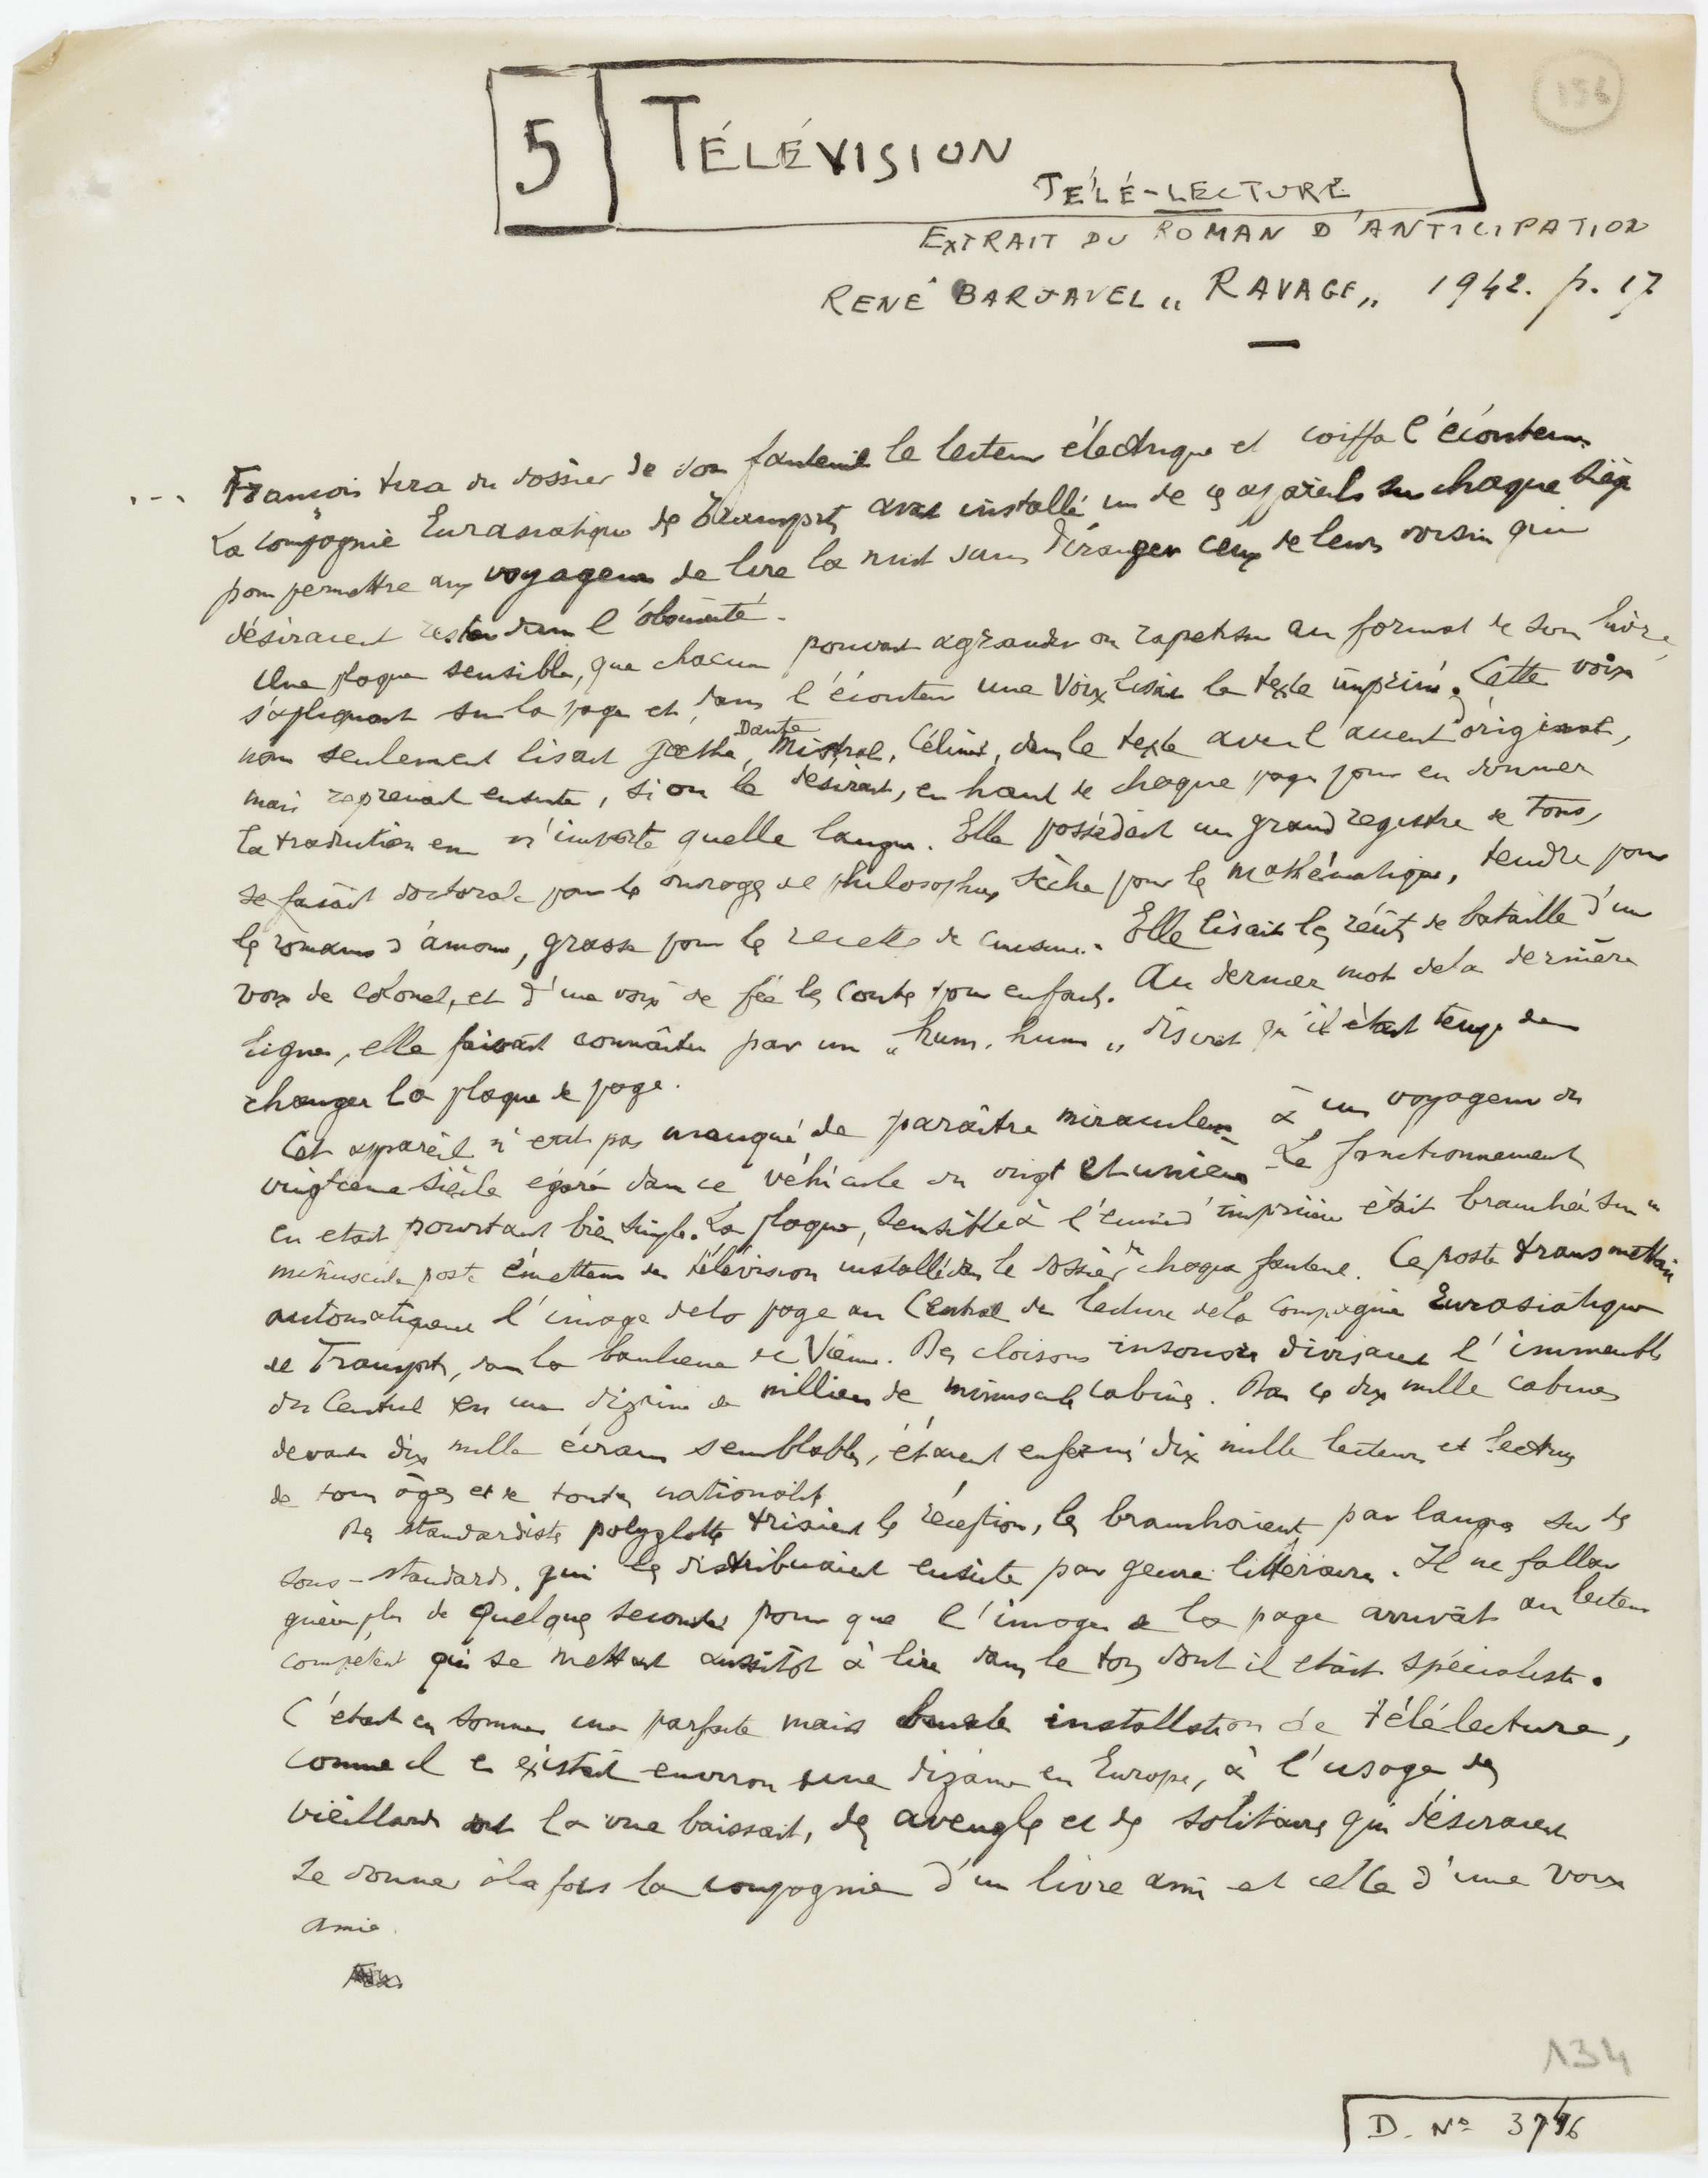 156
5
TÉLÉVISION
TÉLÉ-LECTURE
EXTRAIT DU ROMAN D'ANTICIPATION
RENÉ BARJAVEL „ RAVAGE „ 1942. p. 17
... François tira du dossier de son fauteuil le lecteur électrique et coiffa l'écouteur
La compagnie Eurasiatique des Transports avait installé un de ces appareils sur chaque siège
pour permettre aux voyageurs de lire la nuit sans déranger ceux de leurs voisins qui
désiraient rester dans l'obscurité.
Une plaque sensible, que chacun pouvait agrandir ou rapetisser au format de son livre,
s'appliquait sur la page et, dans l'écouteur une voix lisait le texte imprimé. Cette voix
Dante
non seulement lisait Goethe, Mistral, Céline, dans le texte avec l'accent d'origine,
mais reprenait ensuite, si on le désirait, en haut de chaque page pour en donner
la traduction en n'importe quelle langue. Elle possédait un grand registre de tons,
se faisait doctorale pour les ouvrages de philosophie, sèche pour les mathématiques, tendre pour
les romans d'amour, grasse pour les recettes de cuisine. Elle lisait les récits de bataille d'une
voix de colonel, et d'une voix de fée les contes pour enfants. Au dernier mot de la dernière
ligne, elle faisait connaître par un „ hum, hum „ discret qu'il était temps de
changer la plaque de page.
Cet appareil n'eut pas manqué de paraître miraculeux à un voyageur du
vingtième siècle égaré dans ce véhicule du vingt et unième. Le fonctionnement
en était pourtant bien simple. La plaque, sensible à l'encre d'imprimerie était branchée sur un
de
minuscule poste émetteur de télévision installé dans le dossier chaque fauteuil. Ce poste transmettait
automatiquement l'image de la page au Central de lecture de la Compagnie Eurasiatique
de Transports, dans la banlieue de Vienne. Des cloisons insonores divisaient l'immeuble
du Central en une dizaine de milliers de minuscules cabines. Dans ces dix mille cabines
devant dix mille écrans semblables, étaient enfermés dix mille lecteurs et lectrices
de tous âges et de toutes nationalités
Des standardistes polyglottes triaient les réceptions, les branchaient par langues sur des
sous-standards, qui les distribuaient ensuite par genre littéraire. Il ne fallait
guère plus de quelques secondes pour que l'image de la page arrivât au lecteur
compétent qui se mettait aussitôt à lire dans le ton dont il était spécialiste.
C'était en somme une parfaite mais banale installation de télélecture,
comme il en existait environ une dizaine en Europe, à l'usage des
vieillards dont la vue baissait, des aveugles et des solitaires qui désiraient
se donner à la fois la compagnie d'un livre ami et celle d'une voix
amie.
134
D. No 3796